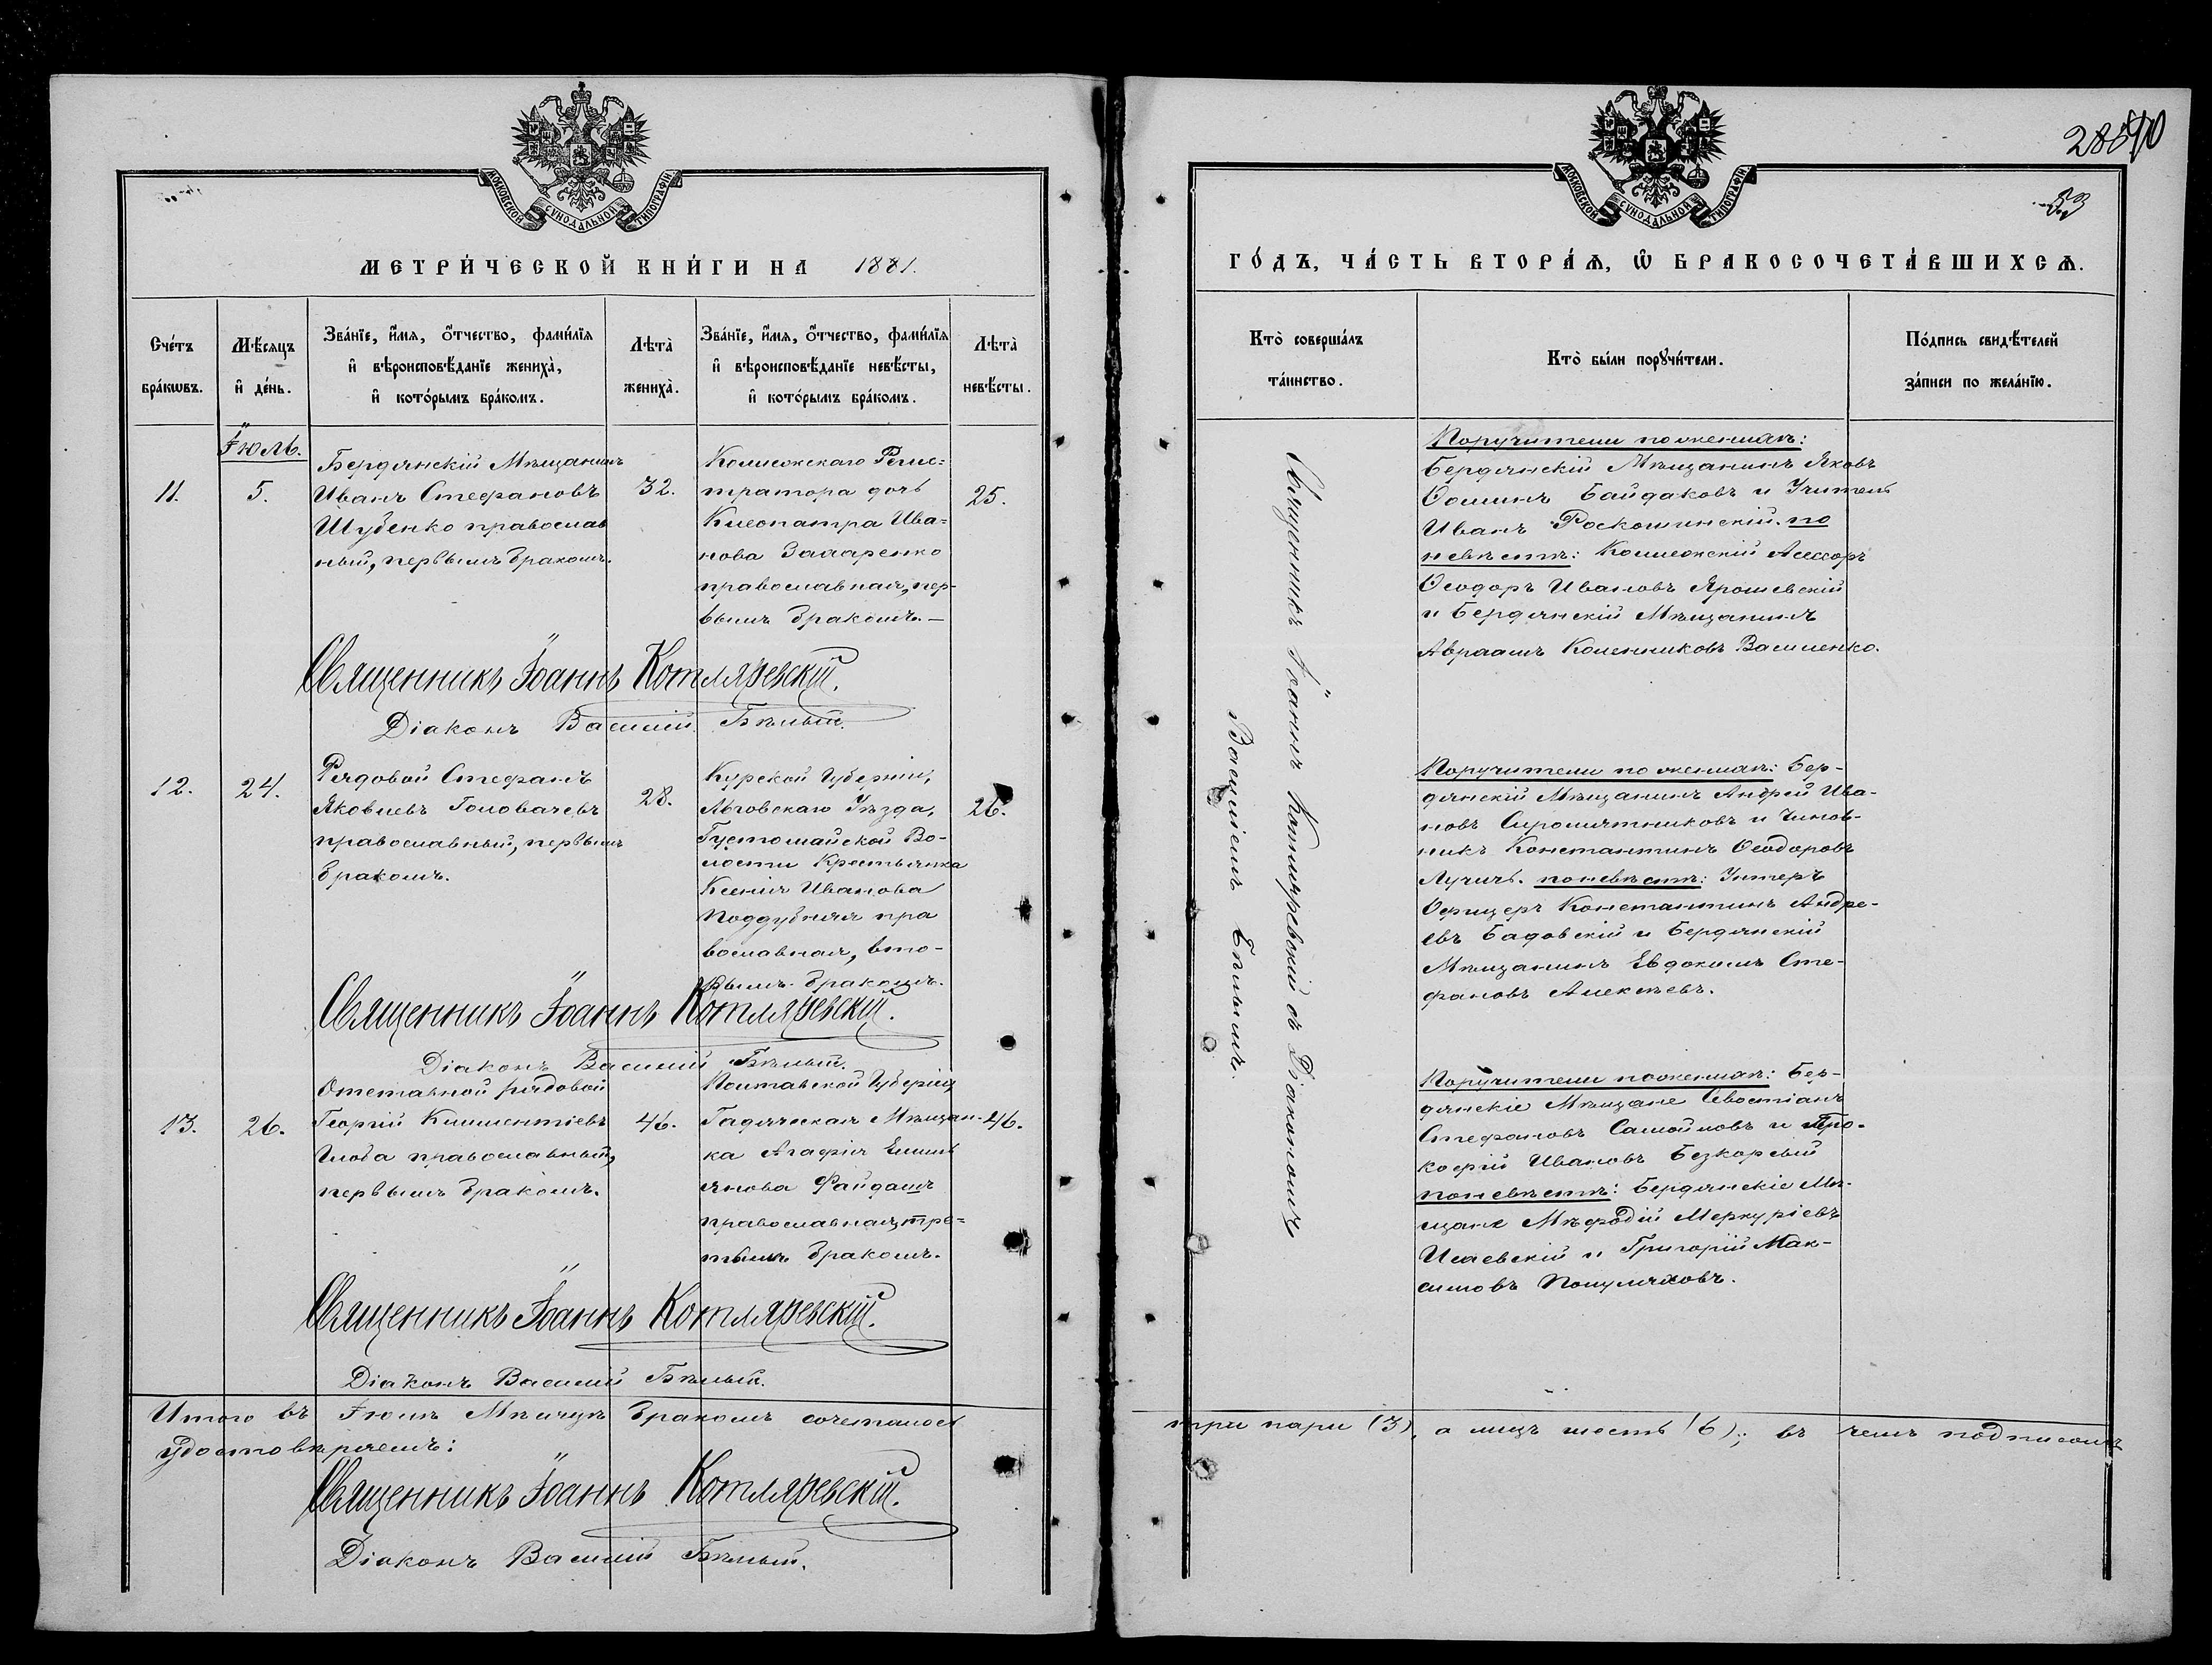 МОСКОВСКОЙ СѴНОДАЛЬНОЙ ТИПОГРАФІИ
МЕТРИ́ЧЕСКОЙ КНИ́ГИ НА 1881.
Сче́тъ
бра́кѡвъ.
Мѣ́сяцъ
и҆ де́нь.
Зва́нїе, и҆́мѧ, ѻ҆́тчество, фами́лїѧ
и҆ вѣроисповѣ́данїе жениха̀,
и҆ кото́рымъ бра́комъ.
Лѣта̀
жениха̀.
Зва́нїе, и҆́мѧ, ѻ҆́тчество, фами́лїѧ
и҆ вѣроисповѣ́данїе невѣ́сты,
и҆ кото́рымъ бра́комъ.
Лѣта̀
невѣ́сты.
Іюль.
11.
5.
Бердянскій Мѣщанинъ
Иванъ Стефановъ
Шубенко православ
ный, первымъ бракомъ.
32.
Коллежскаго Регис=
тратора дочь
Клеопатра Ива=
нова
православная, пер-
вымъ бракомъ.—
25.
Священникъ Іоаннъ Котляревскій.
Діаконъ Василій Бѣлый.
12.
24.
Рядовой Стефанъ
Яковлевъ Головачевъ
православный, первымъ
бракомъ.
28.
Курской Губерніи,
Льговскаго Уѣзда,
Густомайской Во-
лости Крестьянка
Ксенія Иванова
Поддубная пра
вославная, вто-
рымъ бракомъ.
26.
Священникъ Іоаннъ Котляревскій.
Діаконъ Василій Бѣлый.
13.
26.
Отставной рядовой
Георгій Климентіевъ
Глоба православный,
первымъ бракомъ.
46.
Полтавской Губерніи,
Гадячская Мѣщан-
ка Агафія Емель
янова Файдашъ
православная, тре=
тьимъ бракомъ.
46.
Священникъ Іоаннъ Котляревскій.
Діаконъ Василій Бѣлый.
Итого въ Іюлѣ Мѣсяцѣ бракомъ сочеталось
удостовѣряемъ:
Священникъ Іоаннъ Котляревскій.
Діаконъ Василій Бѣлый.
53
МОСКОВСКОЙ СѴНОДАЛЬНОЙ ТИПОГРАФІИ
ГО́ДЪ, ЧА́СТЬ ВТОРА́Ѧ, Ѡ҆ БРАКОСОЧЕТА́ВШИХСѦ.
Кто̀ соверша́лъ
та́инство.
Кто̀ бы́ли порꙋчи́тели.
По́дпись свидѣ́телей
за́писи по жела́нїю.
Священникъ Іоаннъ Котляревскій съ Діакономъ
Василіемъ Бѣлымъ.
Поручители по женихѣ:
Бердянскій Мѣщанинъ Яковъ
Фоминъ Байдаковъ и Учитель
Иванъ Роскошинскій. по
невѣстѣ: Коллежскій Асессоръ
Ѳеодоръ Ивановъ Ярошевскій
и Бердянскій Мѣщанинъ
Авраамъ Колѣнниковъ Василенко.
Поручители по женихѣ: Бер-
дянскій Мѣщанинъ Андрей Ива-
новъ Сыромятниковъ и Чинов-
никъ Константинъ Ѳеодоровъ
Лучичъ. по невѣстѣ: Унтеръ
Офицеръ Константинъ Андре-
евъ Садовскій и Бердянскій
Мѣщанинъ Евдокимъ Сте-
фановъ Алексѣевъ.
Поручители по женихѣ: Бер-
дянскіе Мѣщане Севостіанъ
Стефановъ Самойловъ и Про-
кофій Ивановъ Безкорсый
по невѣстѣ: Бердянскіе Мѣ-
щане Меѳодій Меркуріевъ
Исаевскій и Григорій Мак-
симовъ Полуляховъ.
три пари (3), а лицъ шесть (6); въ чемъ подписомъ